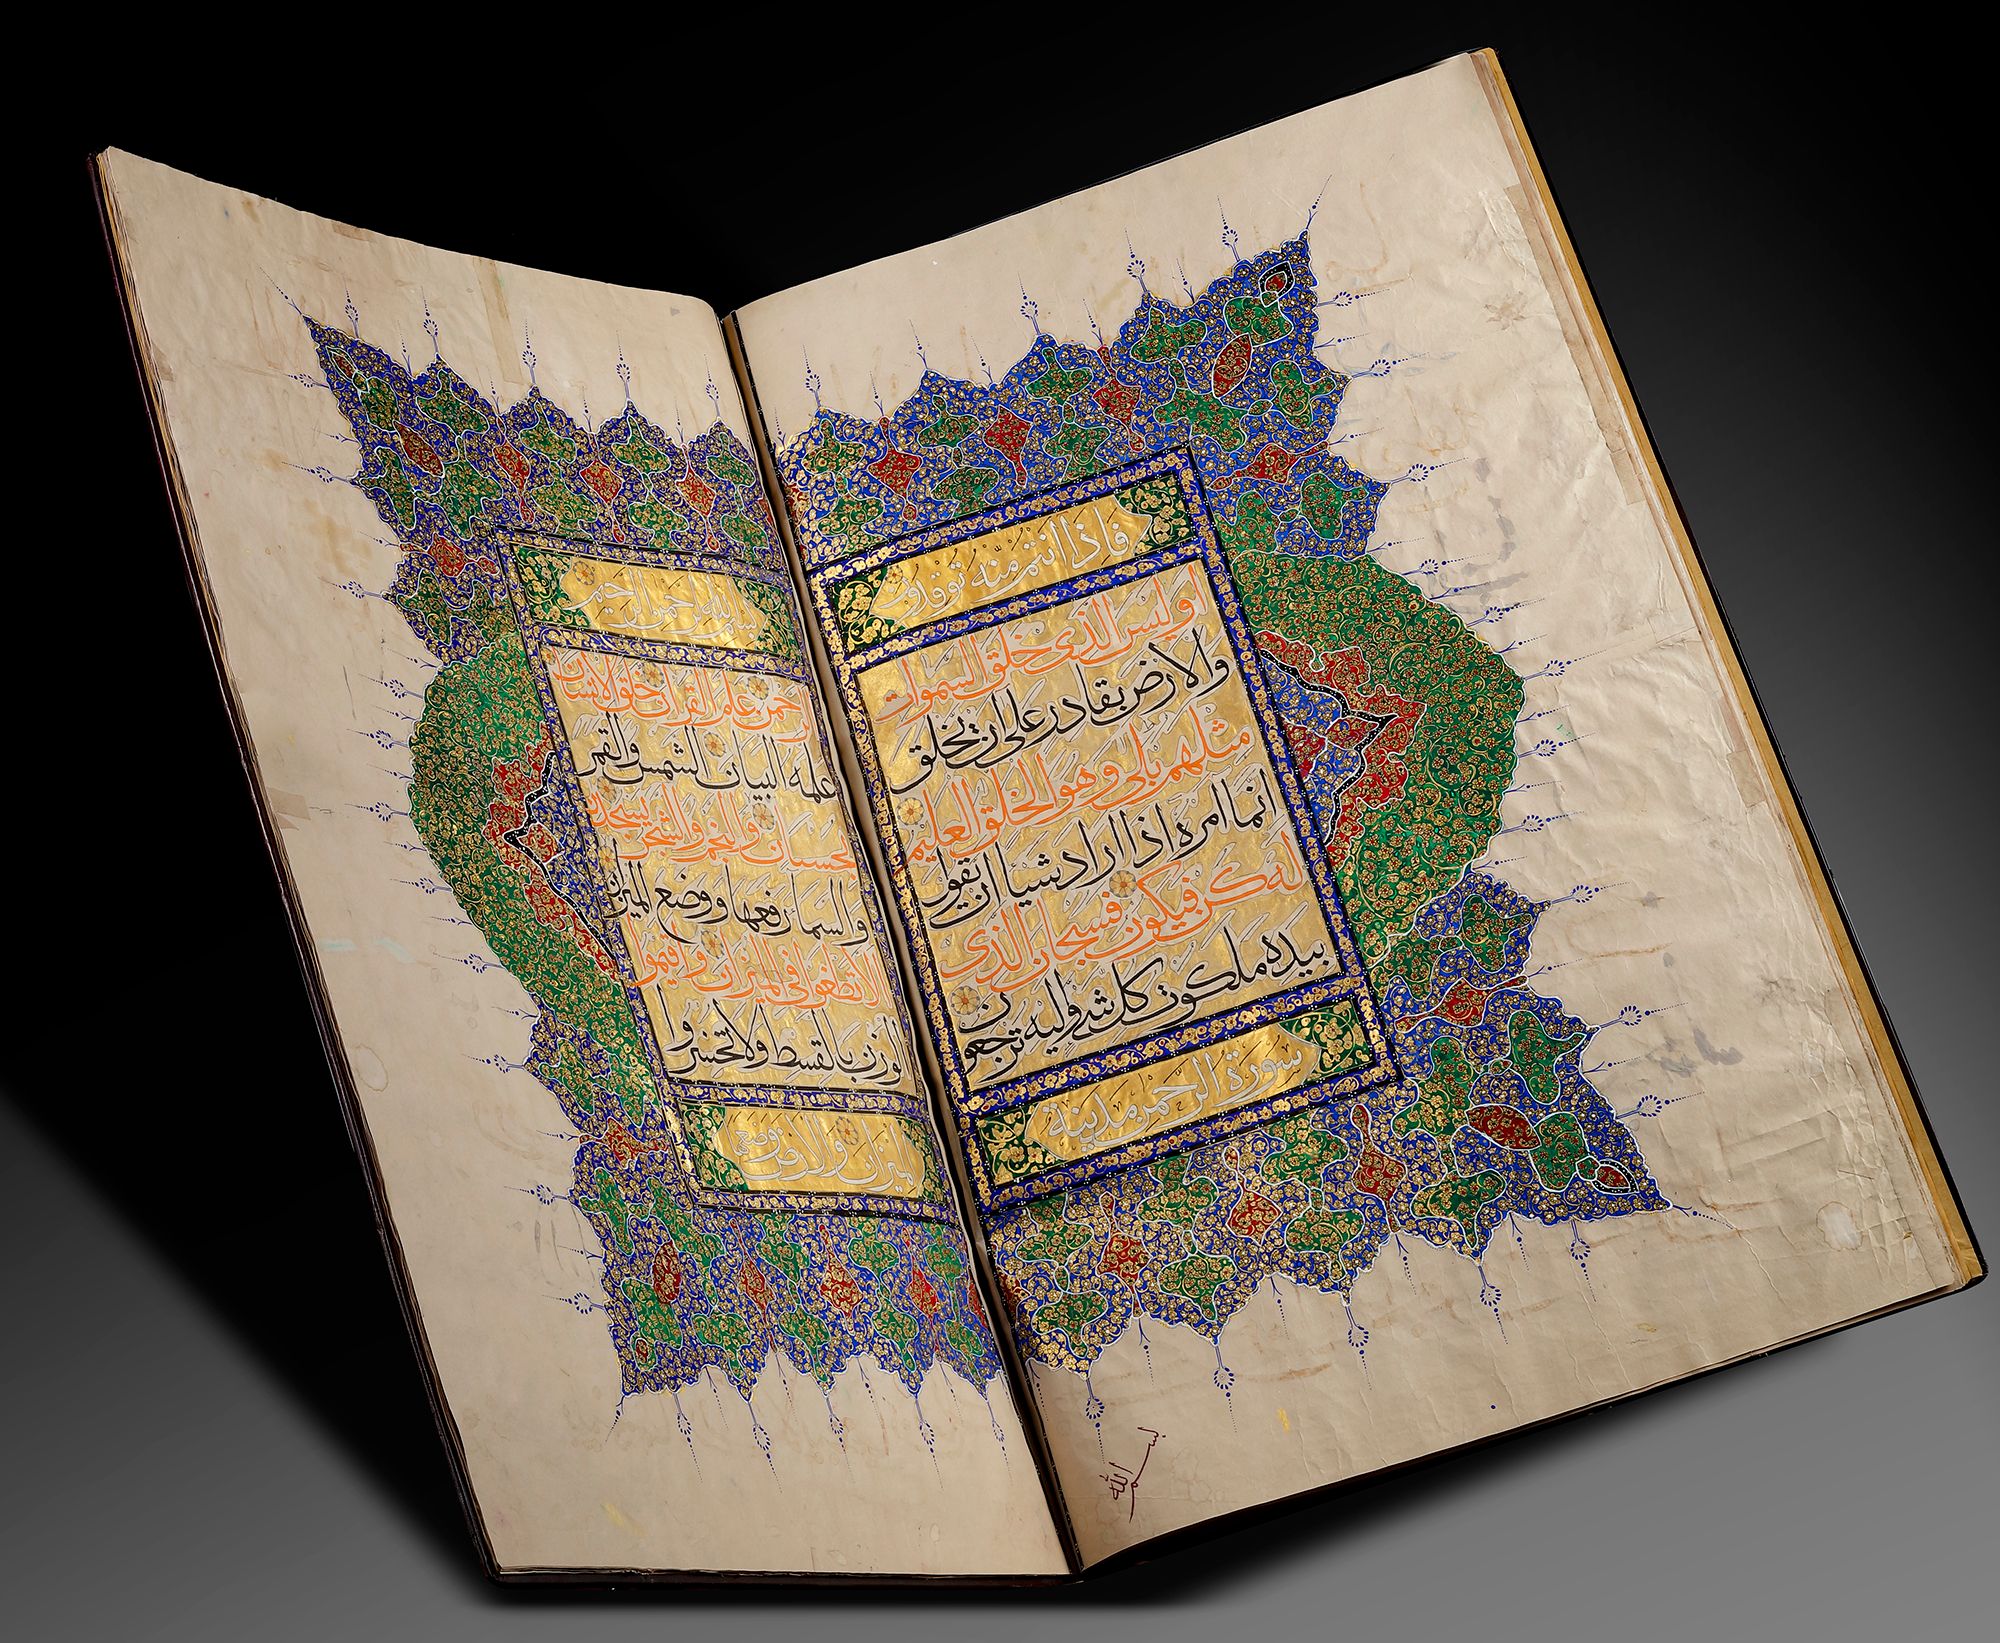 فاذا انتم منه توقدون
او ليس الذى خلق السموات
والارض بقادر على ان يخلق
مثلهم بلى وهو الخلق العليم
انما امره اذا اراد شيا ان يقول
له كن فيكون فسبحان الذى
بيده ملكوت كل شى واليه ترجعون
سورة الرحمن مدنية
بسم الله الرحمن الرحيم
الرحمن علم القران خلق الانسان
علمه البيان الشمس والقمر
بحسبان والنجم والشجر يسجدان
والسما رفعها ووضع الميزان
الا تطغوا فى الميزان واقيموا
الوزن بالقسط ولا تخسروا
الميزان والارض وضعها
بسم الله